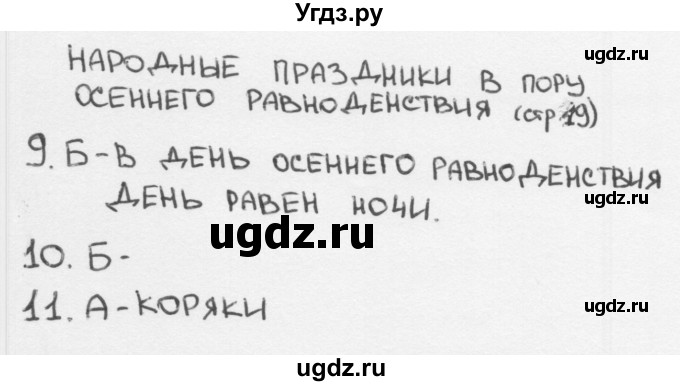 Угдз.ру
ugdz.ru
НАРОДНЫЕ ПРАЗДНИКИ В ПОРУ
ОСЕННЕГО РАВНОДЕНСТВИЯ (стр 19)
ugdz.ru
9. Б-В ДЕНЬ ОСЕННЕГО РАВНОДЕНСТВИЯ
ДЕНЬ РАВЕН НОЧИ.
ugdz.ru
ugdz.ru
10. Б-
11. А-КОРЯКИ
ugdz.ru
ugdz.ru